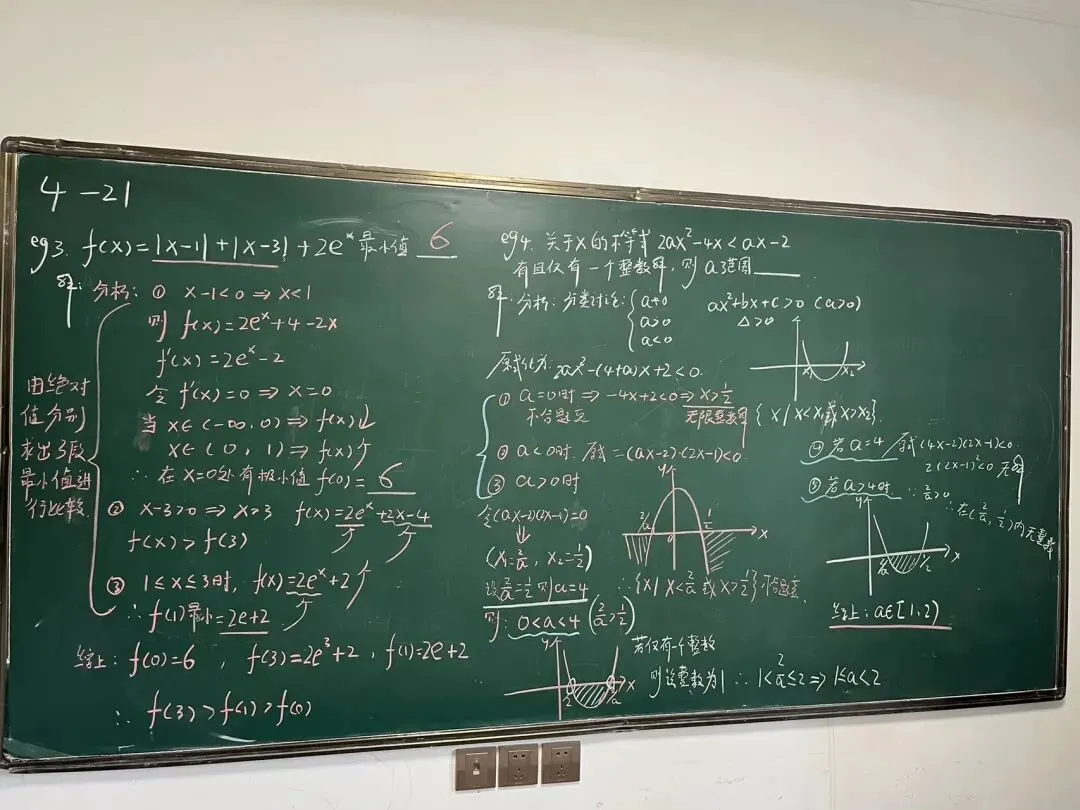 4-21
eg3. f(x)=|x-1|+|x-3|+2eˣ最小值 6
解:分析:① x-1<0⇒x<1
则 f(x)=2eˣ+4-2x
f'(x)=2eˣ-2
令 f'(x)=0⇒x=0
当 x∈(-∞,0)⇒f(x)↓
x∈(0,1)⇒f(x)↑
∴在x=0处有极小值 f(0)=6
② x-3>0⇒x>3 f(x)=2eˣ+2x-4
f(x)>f(3)
③ 1≤x≤3时, f(x)=2eˣ+2↑
∴f(1)最小=2e+2
由绝对
值分别
求出3段
最小值进
行比较
综上: f(0)=6, f(3)=2e³+2, f(1)=2e+2
∴ f(3)>f(1)>f(0)
eg4. 关于x的不等式 2ax²-4x<ax-2
有且仅有一个整数解, 则a范围
解:分析:分类讨论:
a=0
a>0
a<0
ax²+bx+c>0 (a>0)
Δ>0
x₁ x₂ x
{x|x<x₁或x>x₂}
原式化为: 2ax²-(4+a)x+2<0
① a=0时⇒-4x+2<0⇒x>1/2
不合题意 无限整数解
② a<0时, 原式=(ax-2)·(2x-1)<0
③ a>0时
令(ax-2)(2x-1)=0
↓
(x₁=2/a, x₂=1/2)
设2/a=1/2 则a=4
则: 0<a<4 (2/a>1/2)
y
2/a 0 1/2 x
∴{x|x<2/a或x>1/2}不合题意
y
1/2 2/a x
若仅有一个整数
则该整数为1 ∴1<2/a≤2⇒1≤a<2
④ 若a=4 原式(4x-2)(2x-1)<0
2(2x-1)²<0 无解
⑤ 若a>4时 ∵2/a>0
∴在(2/a, 1/2)内无整数
y
2/a 1/2 x
综上: a∈[1,2)